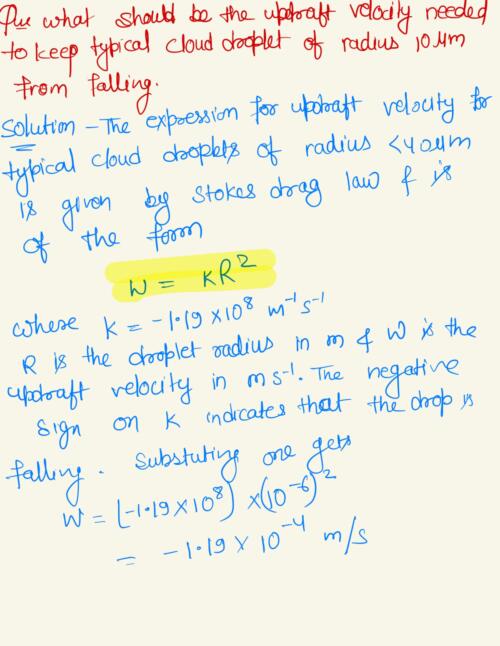 Que what should be the updraft velocity needed
to keep typical cloud droplet of radius 10 µm
from falling.
Solution - The expression for updraft velocity for
typical cloud droplets of radius < 40 µm
is given by Stokes drag law & is
of the form
W = KR²
where K = -1.19 × 10⁸ m⁻¹ s⁻¹
R is the droplet radius in m & W is the
updraft velocity in m s⁻¹. The negative
sign on K indicates that the drop is
falling. Substuting one gets
W = (-1.19 × 10⁸) × (10⁻⁶)²
= -1.19 × 10⁻⁴ m/s